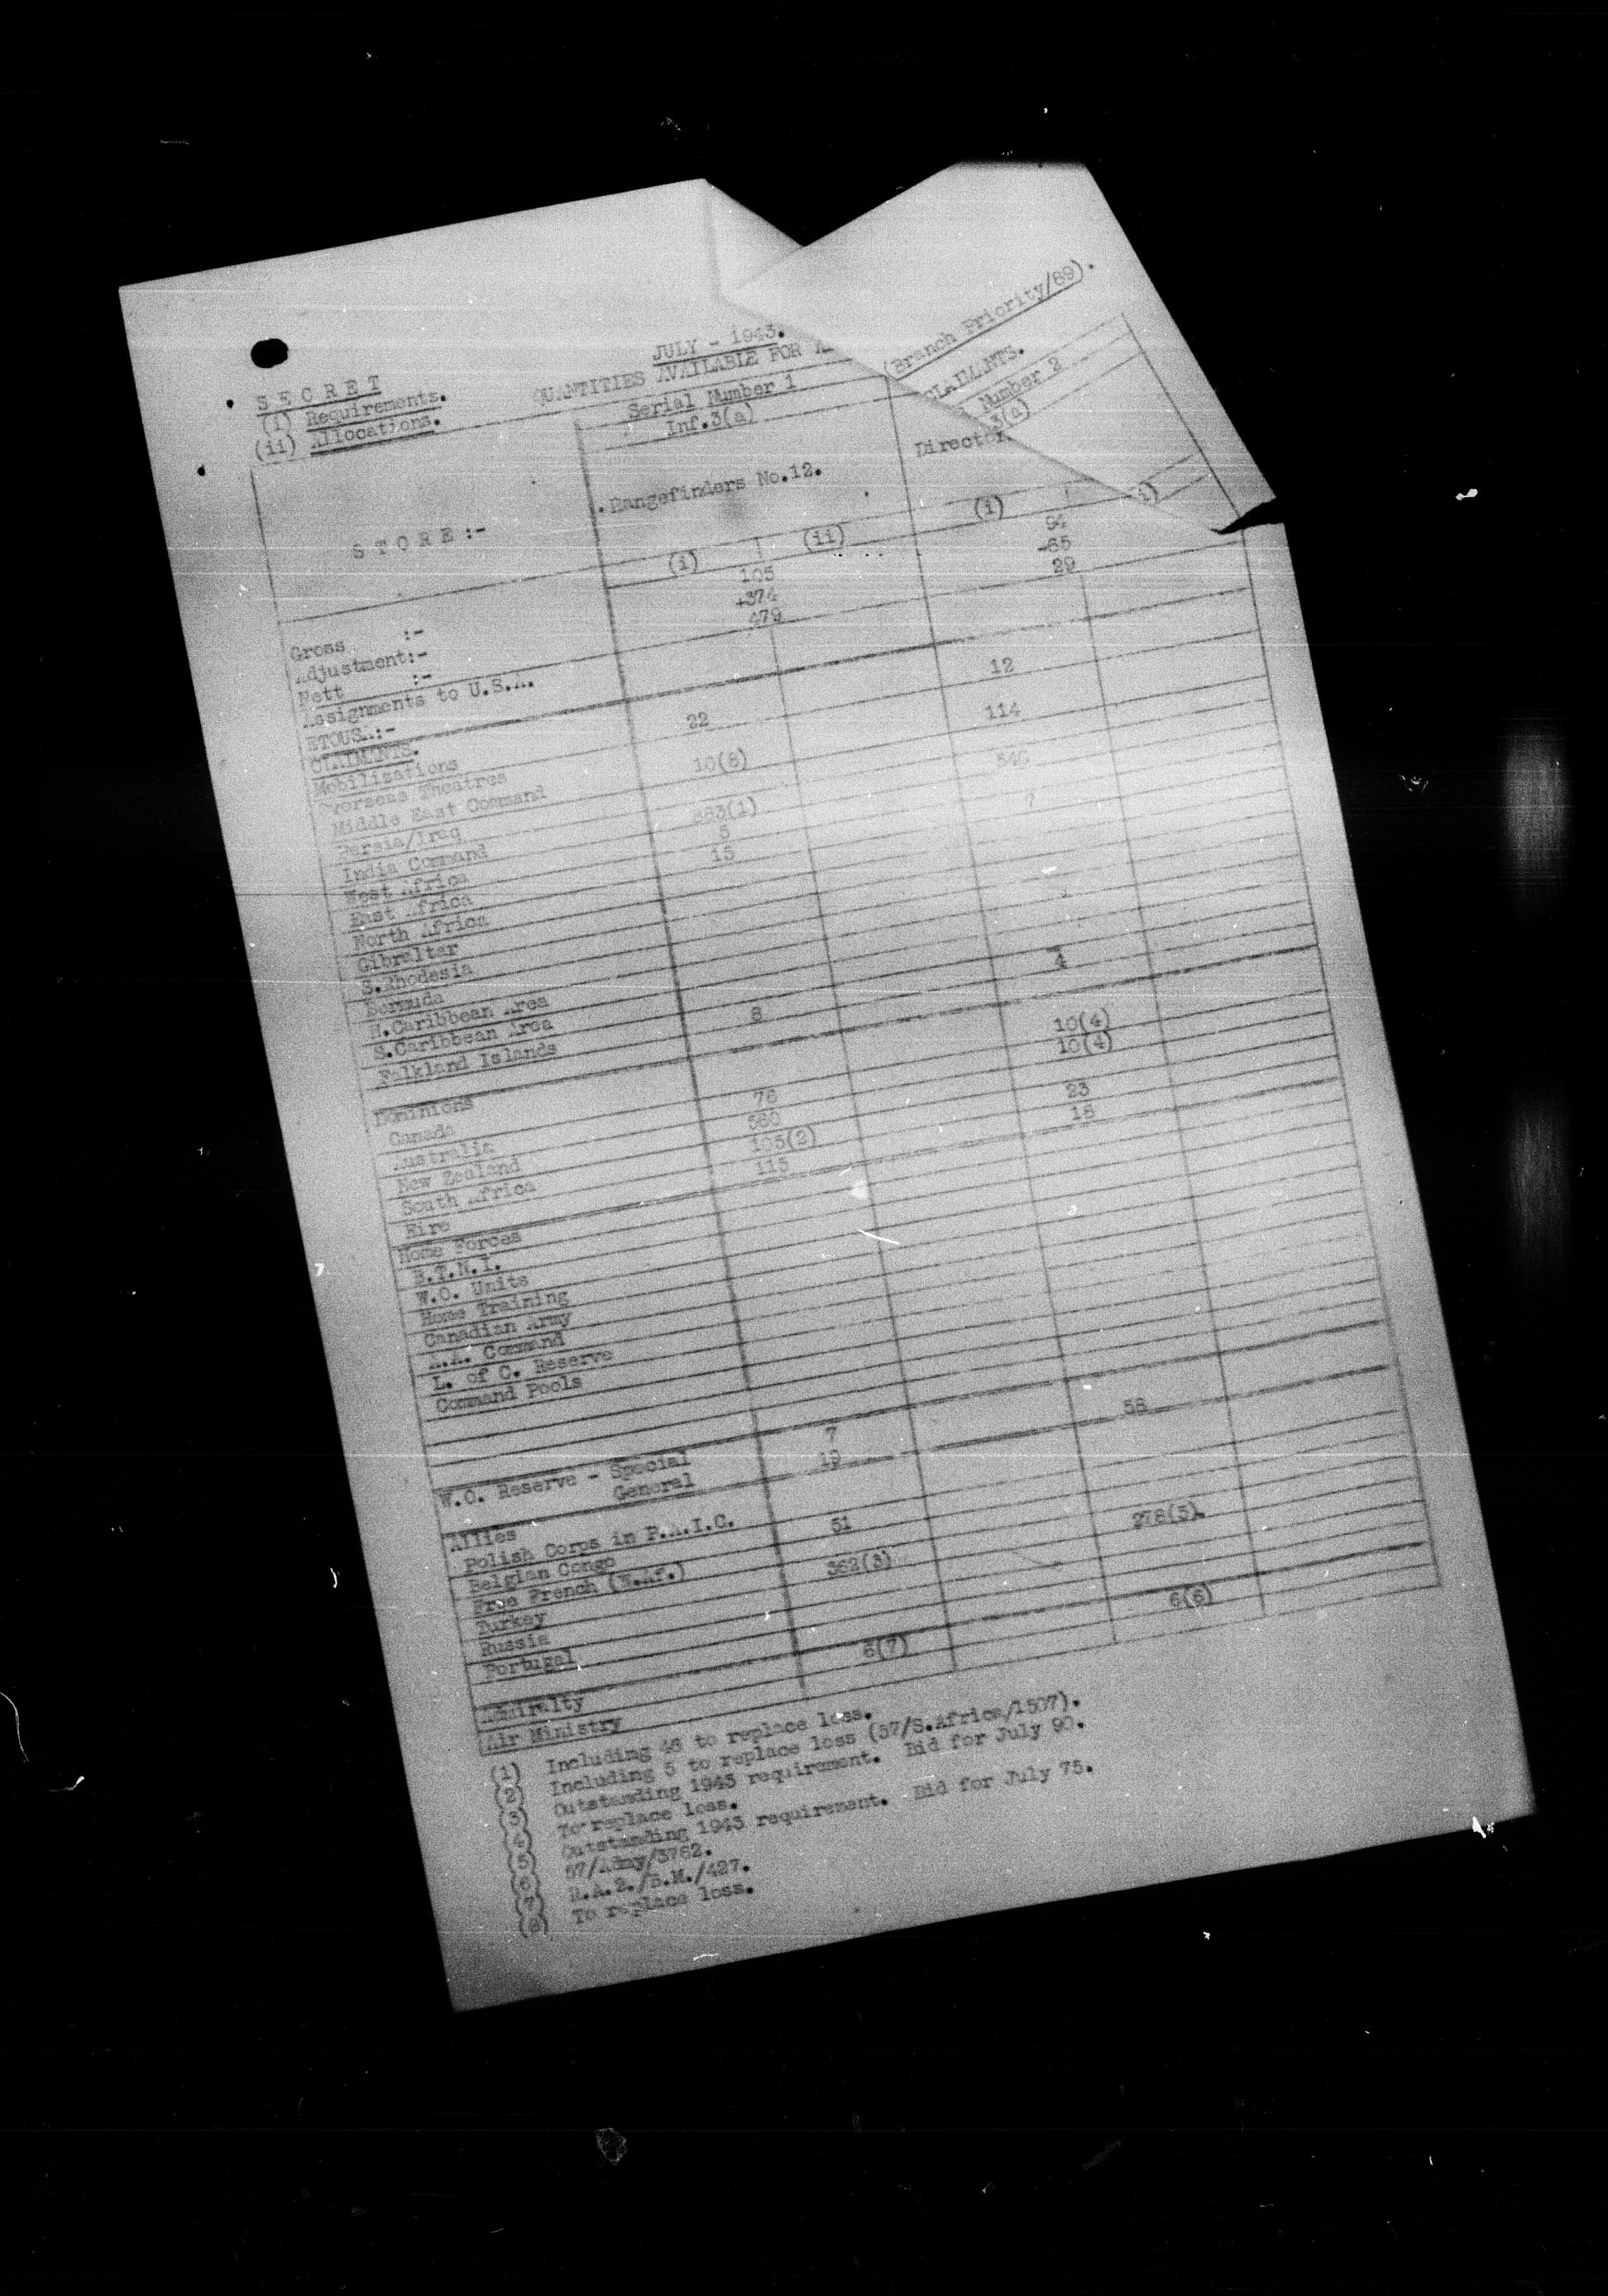 (Branch Priority/89).
JULY - 1943.
QUANTITIES AVAILABLE FOR
CLAIMANTS.
S E C R E T
(i) Requirements.
(ii) Allocations.
Serial Number 1
Inf.3(a)
Number 2
3(a)
S T O R E :-
Rangefinders No.12.
Director
(i) (ii) (i) i)
Gross :- 105 94
Adjustment:- +374 -65
Nett :- 479 29
Assignments to U.S.A.
ETOUSA:-
CLAIMANTS.
Mobilizations 22 12
Overseas Theatres
Middle East Command 10(8) 114
Persia/Iraq
India Command 883(1) 540
West Africa 5
East Africa 15 7
North Africa
Gibraltar
S.Rhodesia
Bermuda
N.Caribbean Area
S.Caribbean Area
Falkland Islands 8 4
Dominions
Canada 10(4)
Australia 76 10(4)
New Zealand 560
South Africa 105(2) 23
Eire 115 18
Home Forces
B.T.N.I.
W.O. Units
Home Training
Canadian Army
A.A. Command
L. of C. Reserve
Command Pools
W.O. Reserve - Special 7
General 19 58
Allies
Polish Corps in P.A.I.C.
Belgian Congo 51
Free French (W.Af.)
Turkey 362(3) 278(5)
Russia
Portugal
Admiralty 6(6)
Air Ministry 6(7)
(1) Including 46 to replace loss.
(2) Including 5 to replace loss (57/S.Africa/1507).
(3) Outstanding 1943 requirement. Bid for July 90.
(4) To replace loss.
(5) Outstanding 1943 requirement. Bid for July 75.
(6) 57/Admy/3762.
(7) R.A.2./B.M./427.
(8) To replace loss.